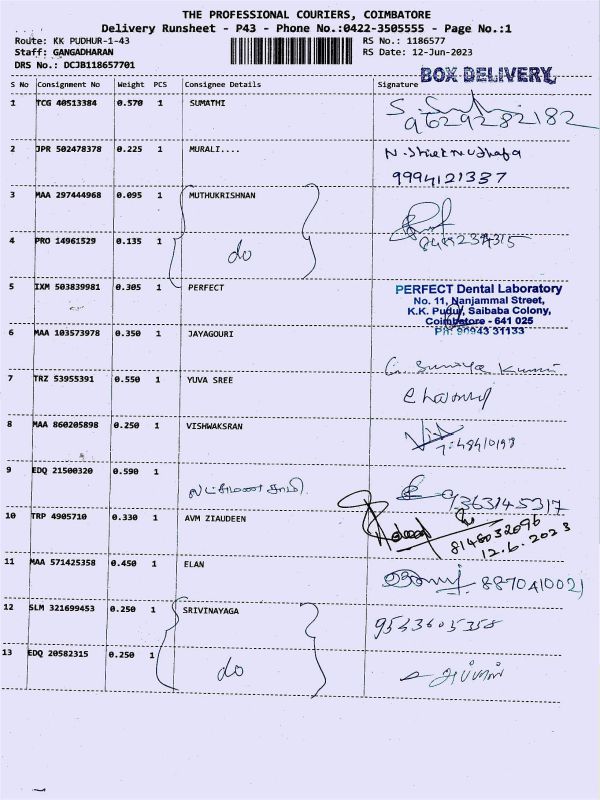 THE PROFESSIONAL COURIERS, COIMBATORE
Delivery Runsheet - P43 - Phone No.:0422-3505555 - Page No.:1
Route: KK PUDHUR-1-43 RS No.: 1186577
Staff: GANGADHARAN RS Date: 12-Jun-2023
DRS No.: DCJB118657701
BOX DELIVERY
S No Consignment No Weight PCS Consignee Details Signature
1 TCG 40513384 0.570 1 SUMATHI
9629282182
2 JPR 502478378 0.225 1 MURALI....
9994121337
3 MAA 297444968 0.095 1 MUTHUKRISHNAN
4 PRO 14961529 0.135 1 do
5 IXM 503839981 0.305 1 PERFECT
PERFECT Dental Laboratory
No. 11, Nanjammal Street,
K.K. Pudur, Saibaba Colony,
Coimbatore - 641 025
PH: 90943 31133
6 MAA 103573978 0.350 1 JAYAGOURI
7 TRZ 53955391 0.550 1 YUVA SREE
8 MAA 860205898 0.250 1 VISHWAKSRAN
9 EDQ 21500320 0.590 1
9363145317
10 TRP 4905710 0.330 1 AVM ZIAUDEEN
8148032096
12.6.2023
11 MAA 571425358 0.450 1 ELAN
8870410021
12 SLM 321699453 0.250 1 SRIVINAYAGA
9543605358
13 EDQ 20582315 0.250 1 do